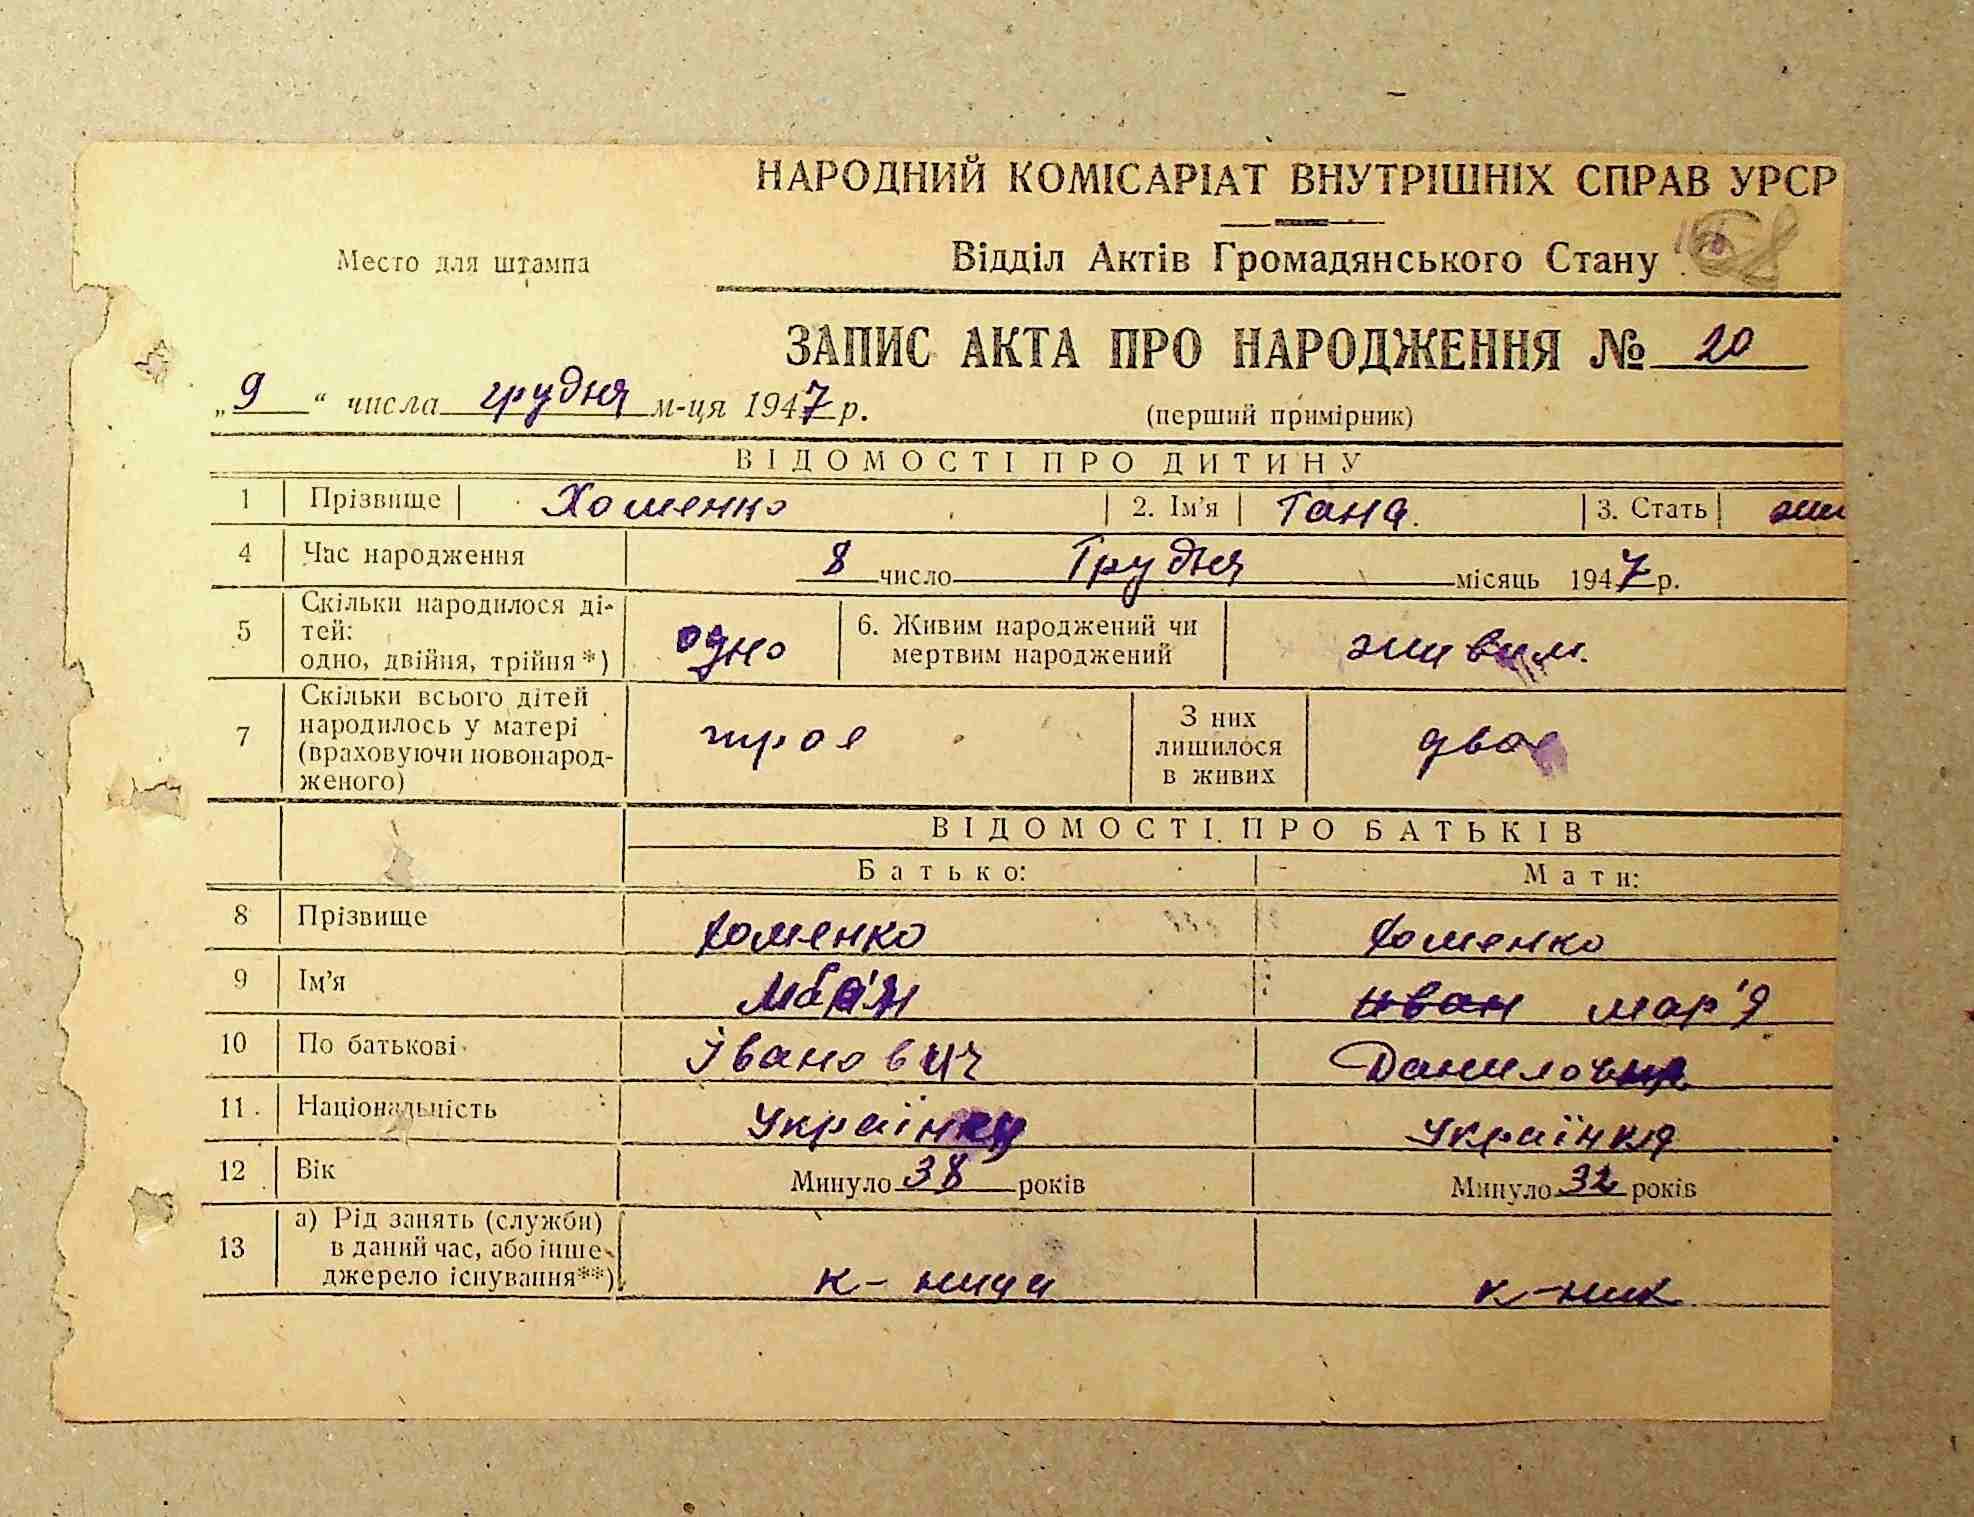 НАРОДНИЙ КОМІСАРІАТ ВНУТРІШНІХ СПРАВ УРСР
Место для штампа
Відділ Актів Громадянського Стану
ЗАПИС АКТА ПРО НАРОДЖЕННЯ № 20
„9“ числа грудня м-ця 1947 р.
(перший примірник)
ВІДОМОСТІ ПРО ДИТИНУ
1 Прізвище Хоменко 2. Ім'я Гана. 3. Стать жи
4 Час народження 8 число Грудня місяць 1947 р.
5 Скільки народилося ді-
тей:
одно, двійня, трійня*) одно 6. Живим народжений чи
мертвим народжений живим.
7 Скільки всього дітей
народилось у матері
(враховуючи новонарод-
женого) троє З них
лишилося
в живих двоє
ВІДОМОСТІ ПРО БАТЬКІВ
Батько: Мати:
8 Прізвище Хоменко Хоменко
9 Ім'я иван мар'я
10 По батькові іванович Даниловна
11. Національність українец українка
12 Вік Минуло 38 років Минуло 32 років
13 а) Рід занять (служби)
в даний час, або інше
джерело існування**) к-ници к-ник